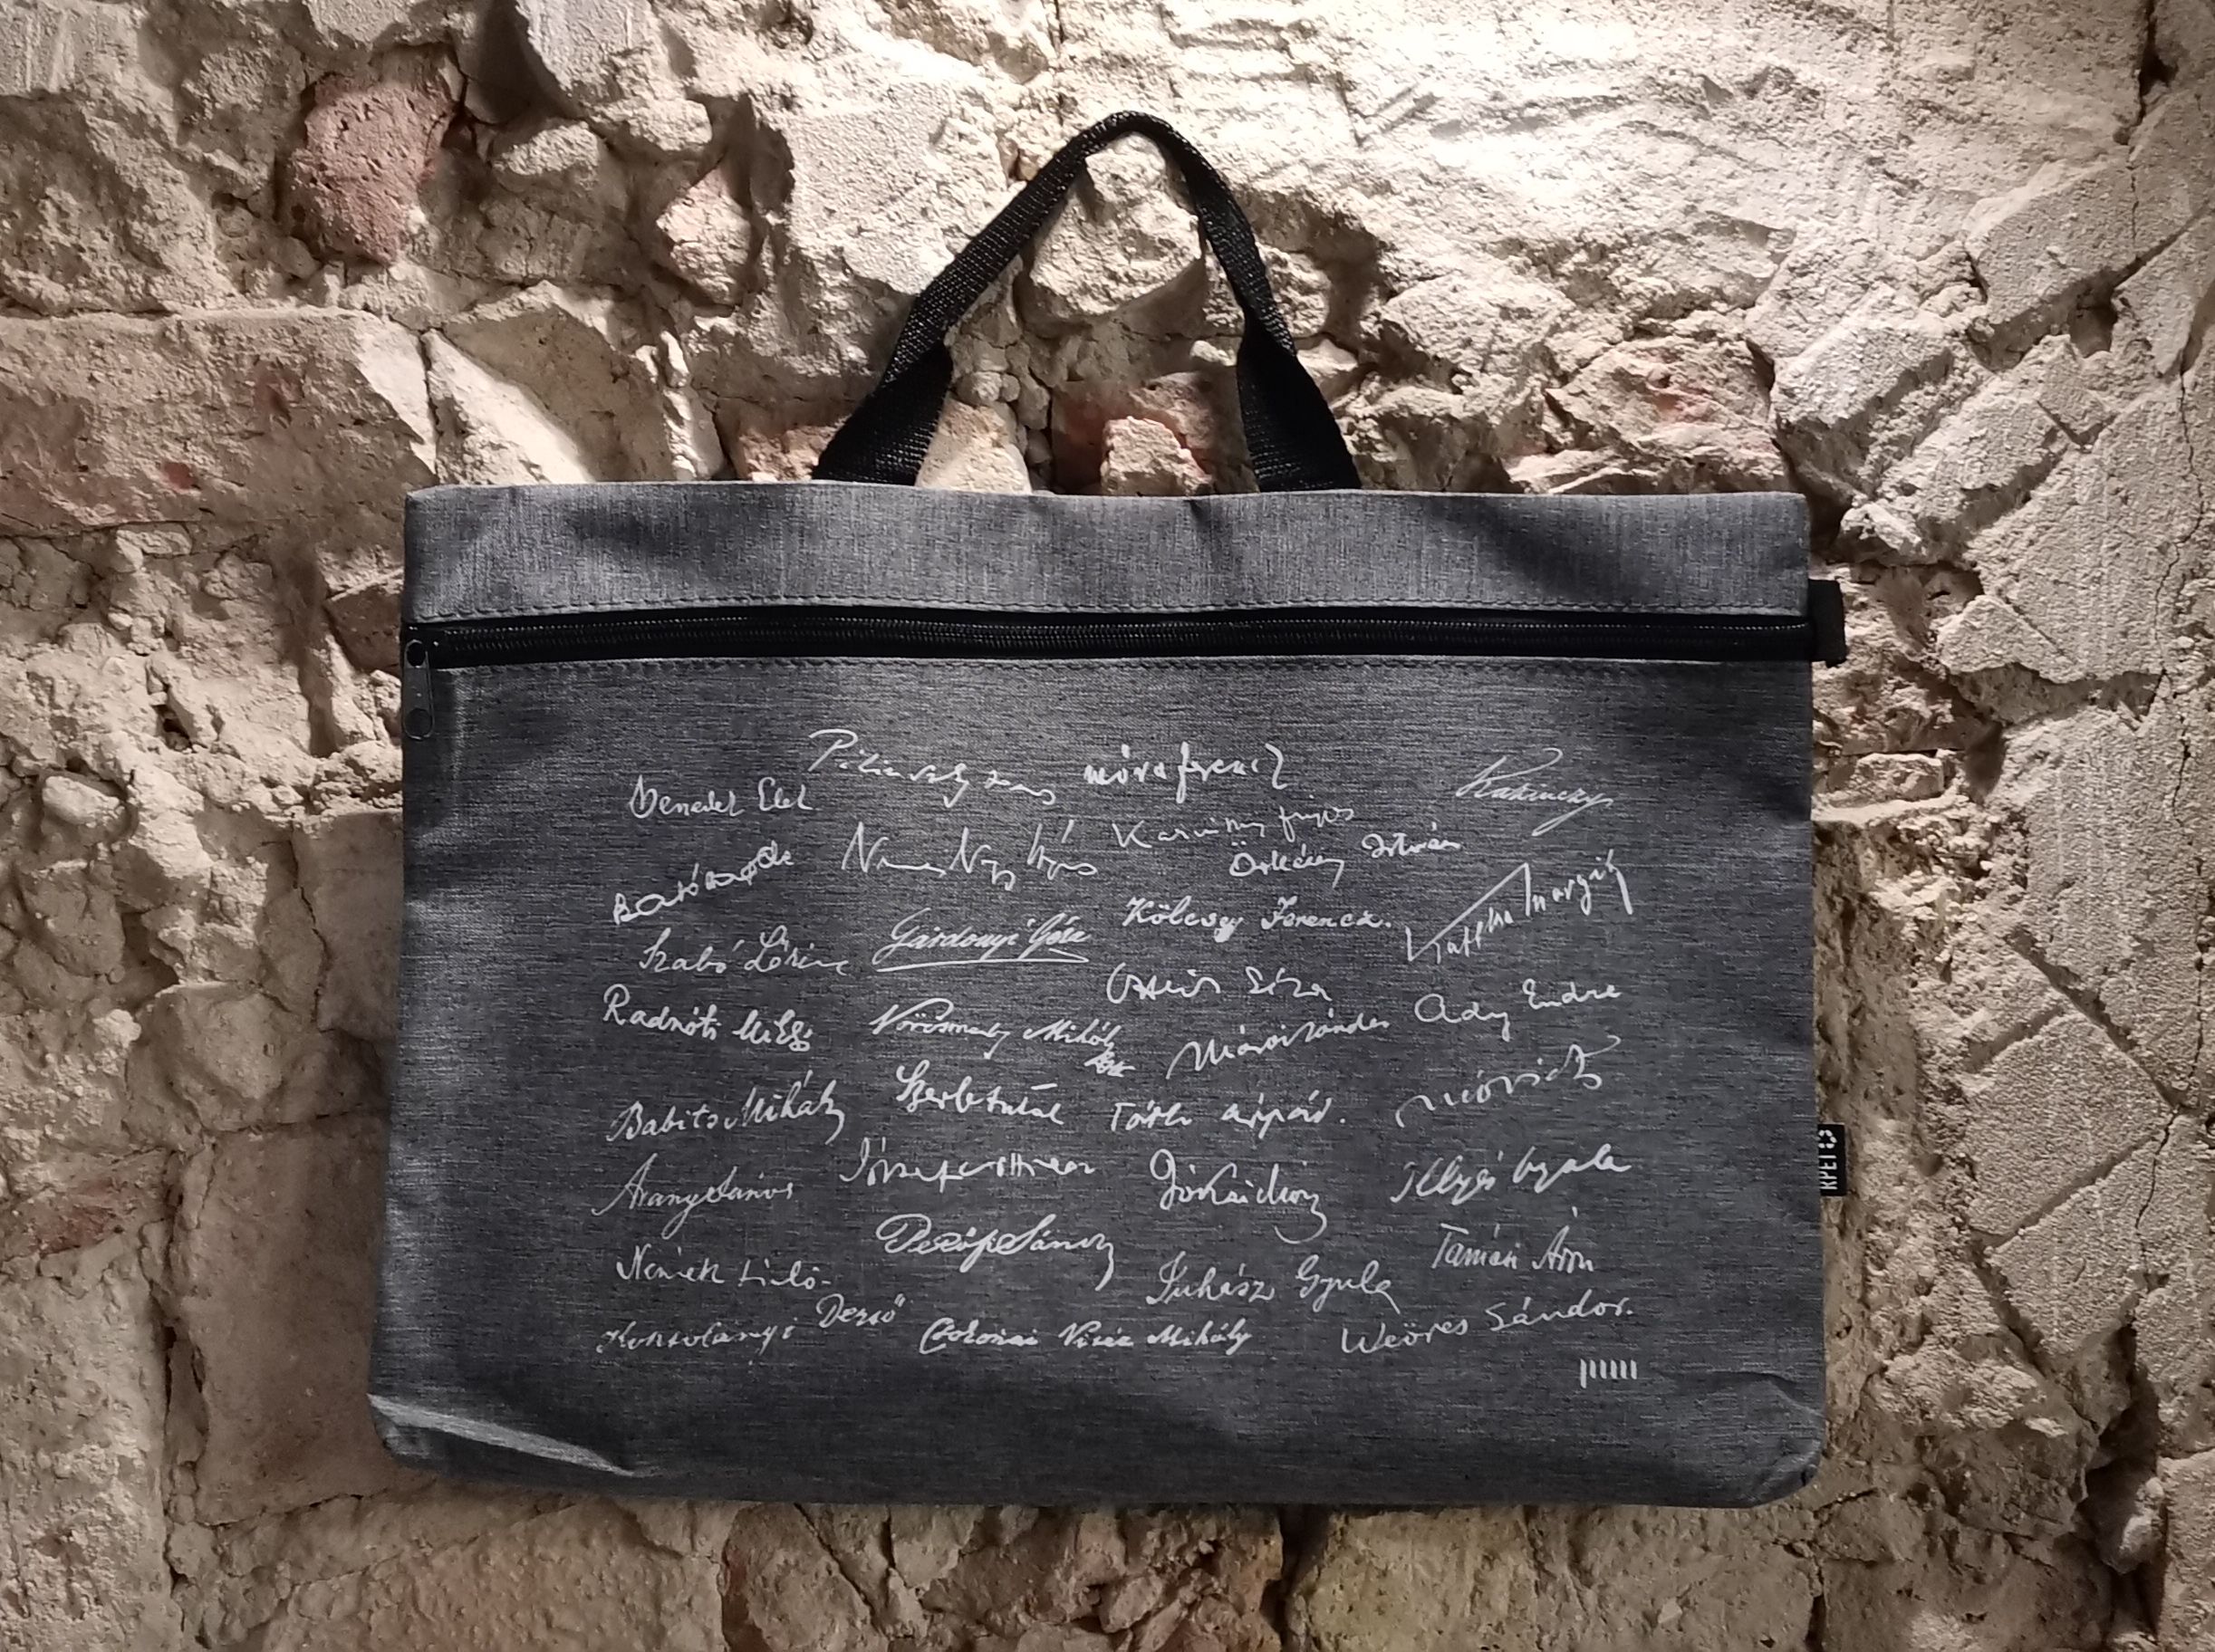 Pilinszky János
móra ferenc
Kazinczy
Benedek Elek
Karinthy frigyes
Nemes Nagy Ágnes
Örkény István
Kaffka Margit
Kölcsey Ferencz.
Gárdonyi Géza
Szabó Lőrinc
Ottlik Géza
Ady Endre
Radnóti Miklós
Vörösmarty Mihály
Márai Sándor
Szerb Antal
Babits Mihály
Tóth Árpád.
Móricz
József Attila
Jókai Mór
Illyés Gyula
Arany János
Petőfi Sándor
Tamási Áron
Németh László
Juhász Gyula
Kosztolányi Dezső
Csokonai Vitéz Mihály
Weöres Sándor.
RPET